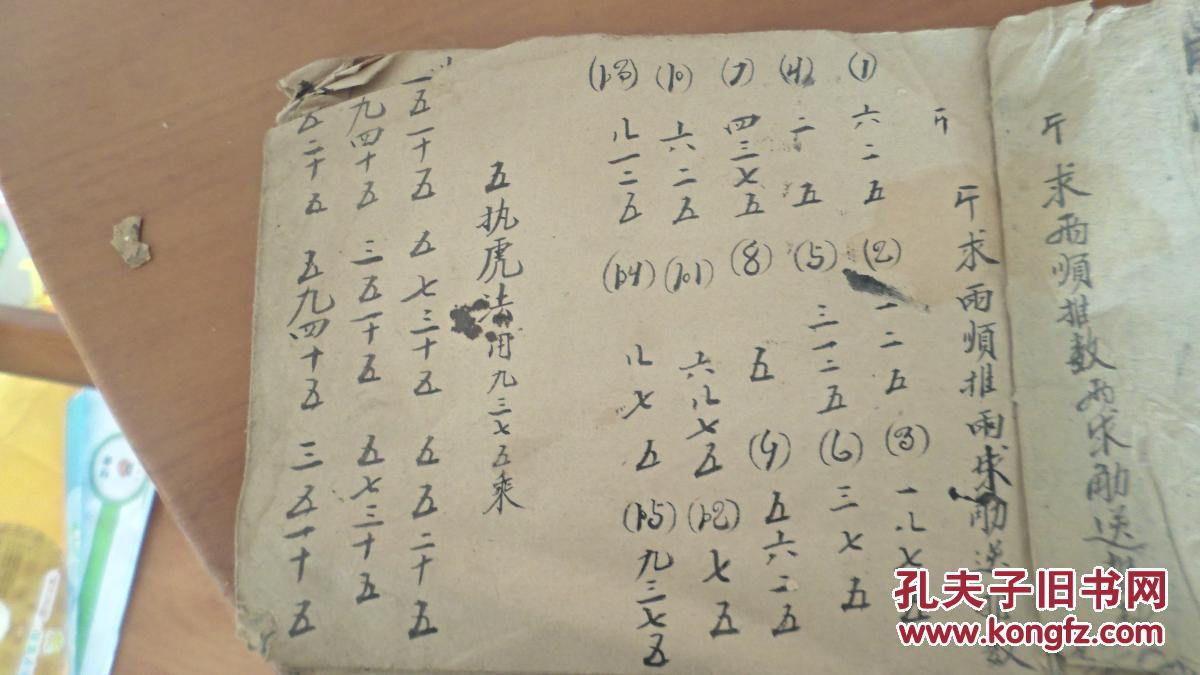 斤求両順推數両求觔送
斤求両順推両求觔送數
(1) 六二五 (2) 一二五 (3) 一八七五
(4) 二五 (5) 三一二五 (6) 三七五
(7) 四三七五 (8) 五 (9) 五六二五
(10) 六二五 (101) 六八七五 (102) 七五
(103) 八一二五 (104) 八七五 (105) 九三七五
五执虎法用九三七五乘
一五一十五 五七三十五 五五二十五
九四十五 三五一十五 五七三十五
五二十五 五九四十五 三五一十五
孔夫子旧书网
www.kongfz.com